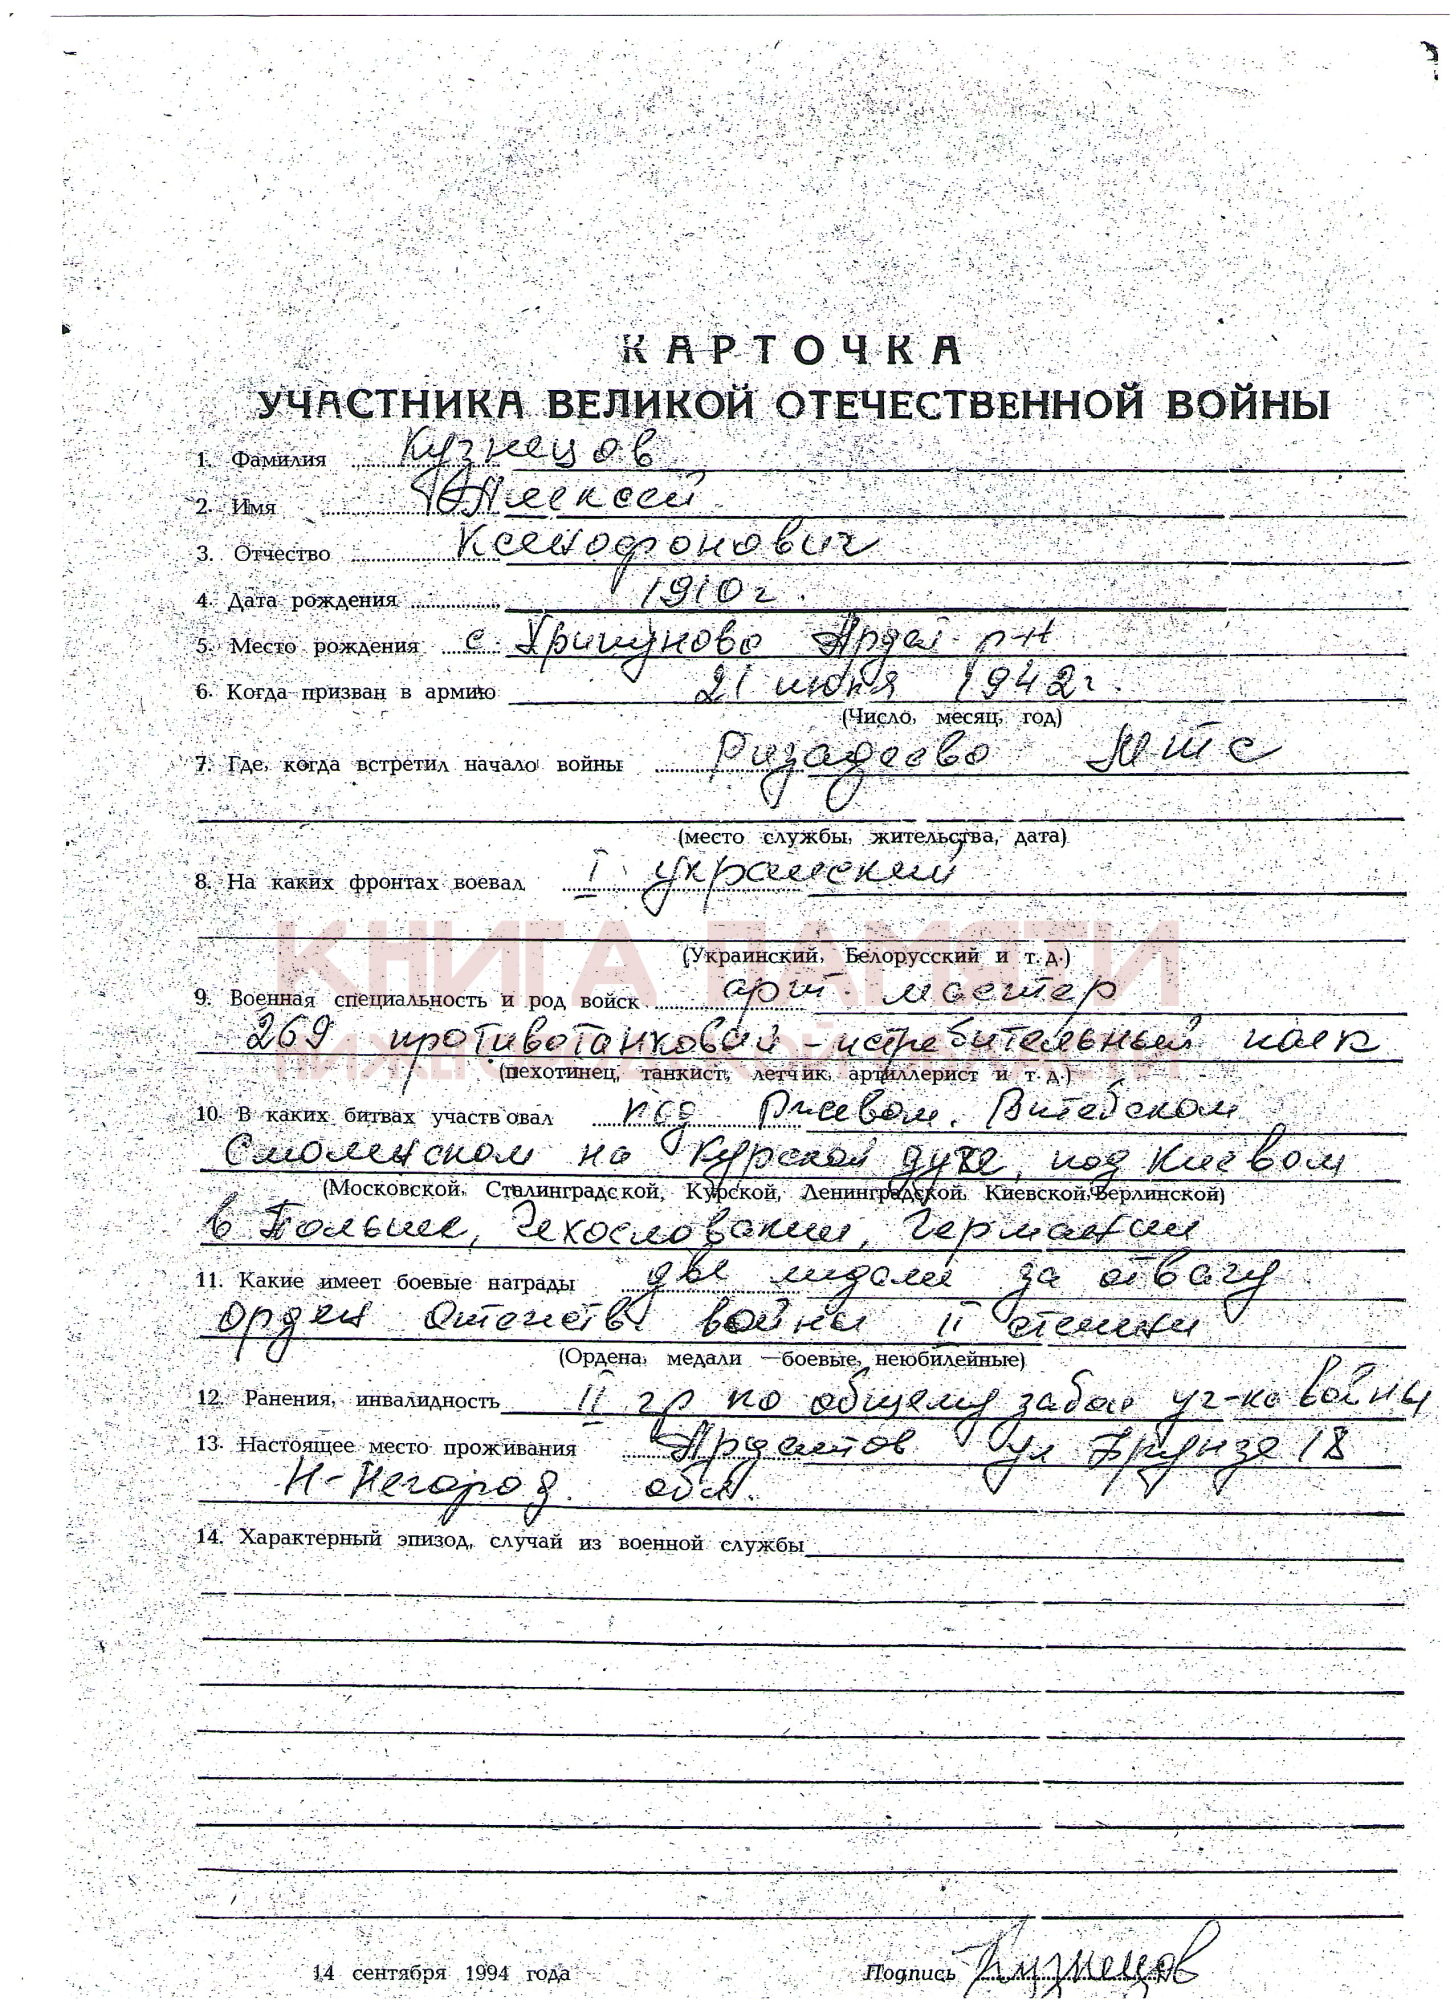 КАРТОЧКА
УЧАСТНИКА ВЕЛИКОЙ ОТЕЧЕСТВЕННОЙ ВОЙНЫ
1. Фамилия Кузнецов
2. Имя Алексей
3. Отчество Ксенофонович
4. Дата рождения 1910 г.
5. Место рождения с. Гришуново Ардат. р-н
6. Когда призван в армию 21 июня 1942 г.
(Число, месяц, год)
7. Где, когда встретил начало войны Ризадеево МТС
(место службы, жительства, дата)
8. На каких фронтах воевал I украинский
КНИГА ПАМЯТИ
(Украинский, Белорусский и т. д.)
9. Военная специальность и род войск арт. мастер
269 противотанковый-истребительный полк
НИЖЕГОРОДСКОЙ ОБЛАСТИ
(пехотинец, танкист, летчик, артиллерист и т. д.)
10. В каких битвах участвовал под Ржевом, Витебском
Смоленском на Курской дуге, под Киевом
(Московской, Сталинградской, Курской, Ленинградской, Киевской, Берлинской)
в Польше, Чехословакии, Германии
11. Какие имеет боевые награды две медали за отвагу
орден Отечеств. войны II степени
(Ордена, медали —боевые, неюбилейные)
12. Ранения, инвалидность II гр по общему забол уч-ка войны
13. Настоящее место проживания Ардатов ул Фрунзе 18
Н-Негород. обл.
14. Характерный эпизод, случай из военной службы
14 сентября 1994 года Подпись Кузнецов